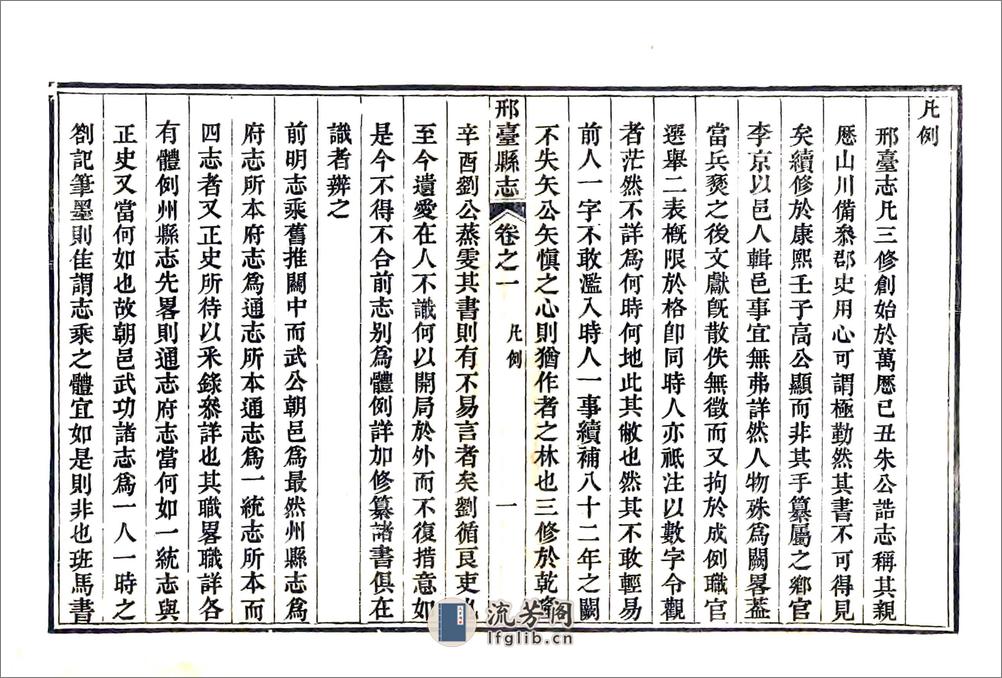 凡例
邢臺志凡三修創始於萬厯己丑朱公誥志稱其親
厯山川備叅郡史用心可謂極勤然其書不可得見
矣續修於康熙壬子高公顯而非其手纂屬之鄉官
李京以邑人輯邑事宜無弗詳然人物殊爲闕畧葢
當兵燹之後文獻旣散佚無徵而又拘於成例職官
選舉二表槪限於格卽同時人亦祇注以數字令觀
者茫然不詳爲何時何地此其敝也然其不敢輕易
前人一字不敢濫入時人一事續補八十二年之闕
不失矢公矢愼之心則猶作者之林也三修於乾隆
邢臺縣志
卷之一
凡例
一
辛酉劉公蒸雯其書則有不易言者矣劉循良吏也
至今遺愛在人不識何以開局於外而不復措意如
是今不得不合前志别爲體例詳加修纂諸書俱在
識者辨之
前明志乘舊推關中而武公朝邑爲最然州縣志爲
府志所本府志爲通志所本通志爲一統志所本而
四志者又正史所待以采錄叅詳也其職畧職詳各
有體例州縣志先畧則通志府志當何如一統志與
正史又當何如也故朝邑武功諸志爲一人一時之
劄記筆墨則佳謂志乘之體宜如是則非也班馬書
流芳阁
lfglib.cn